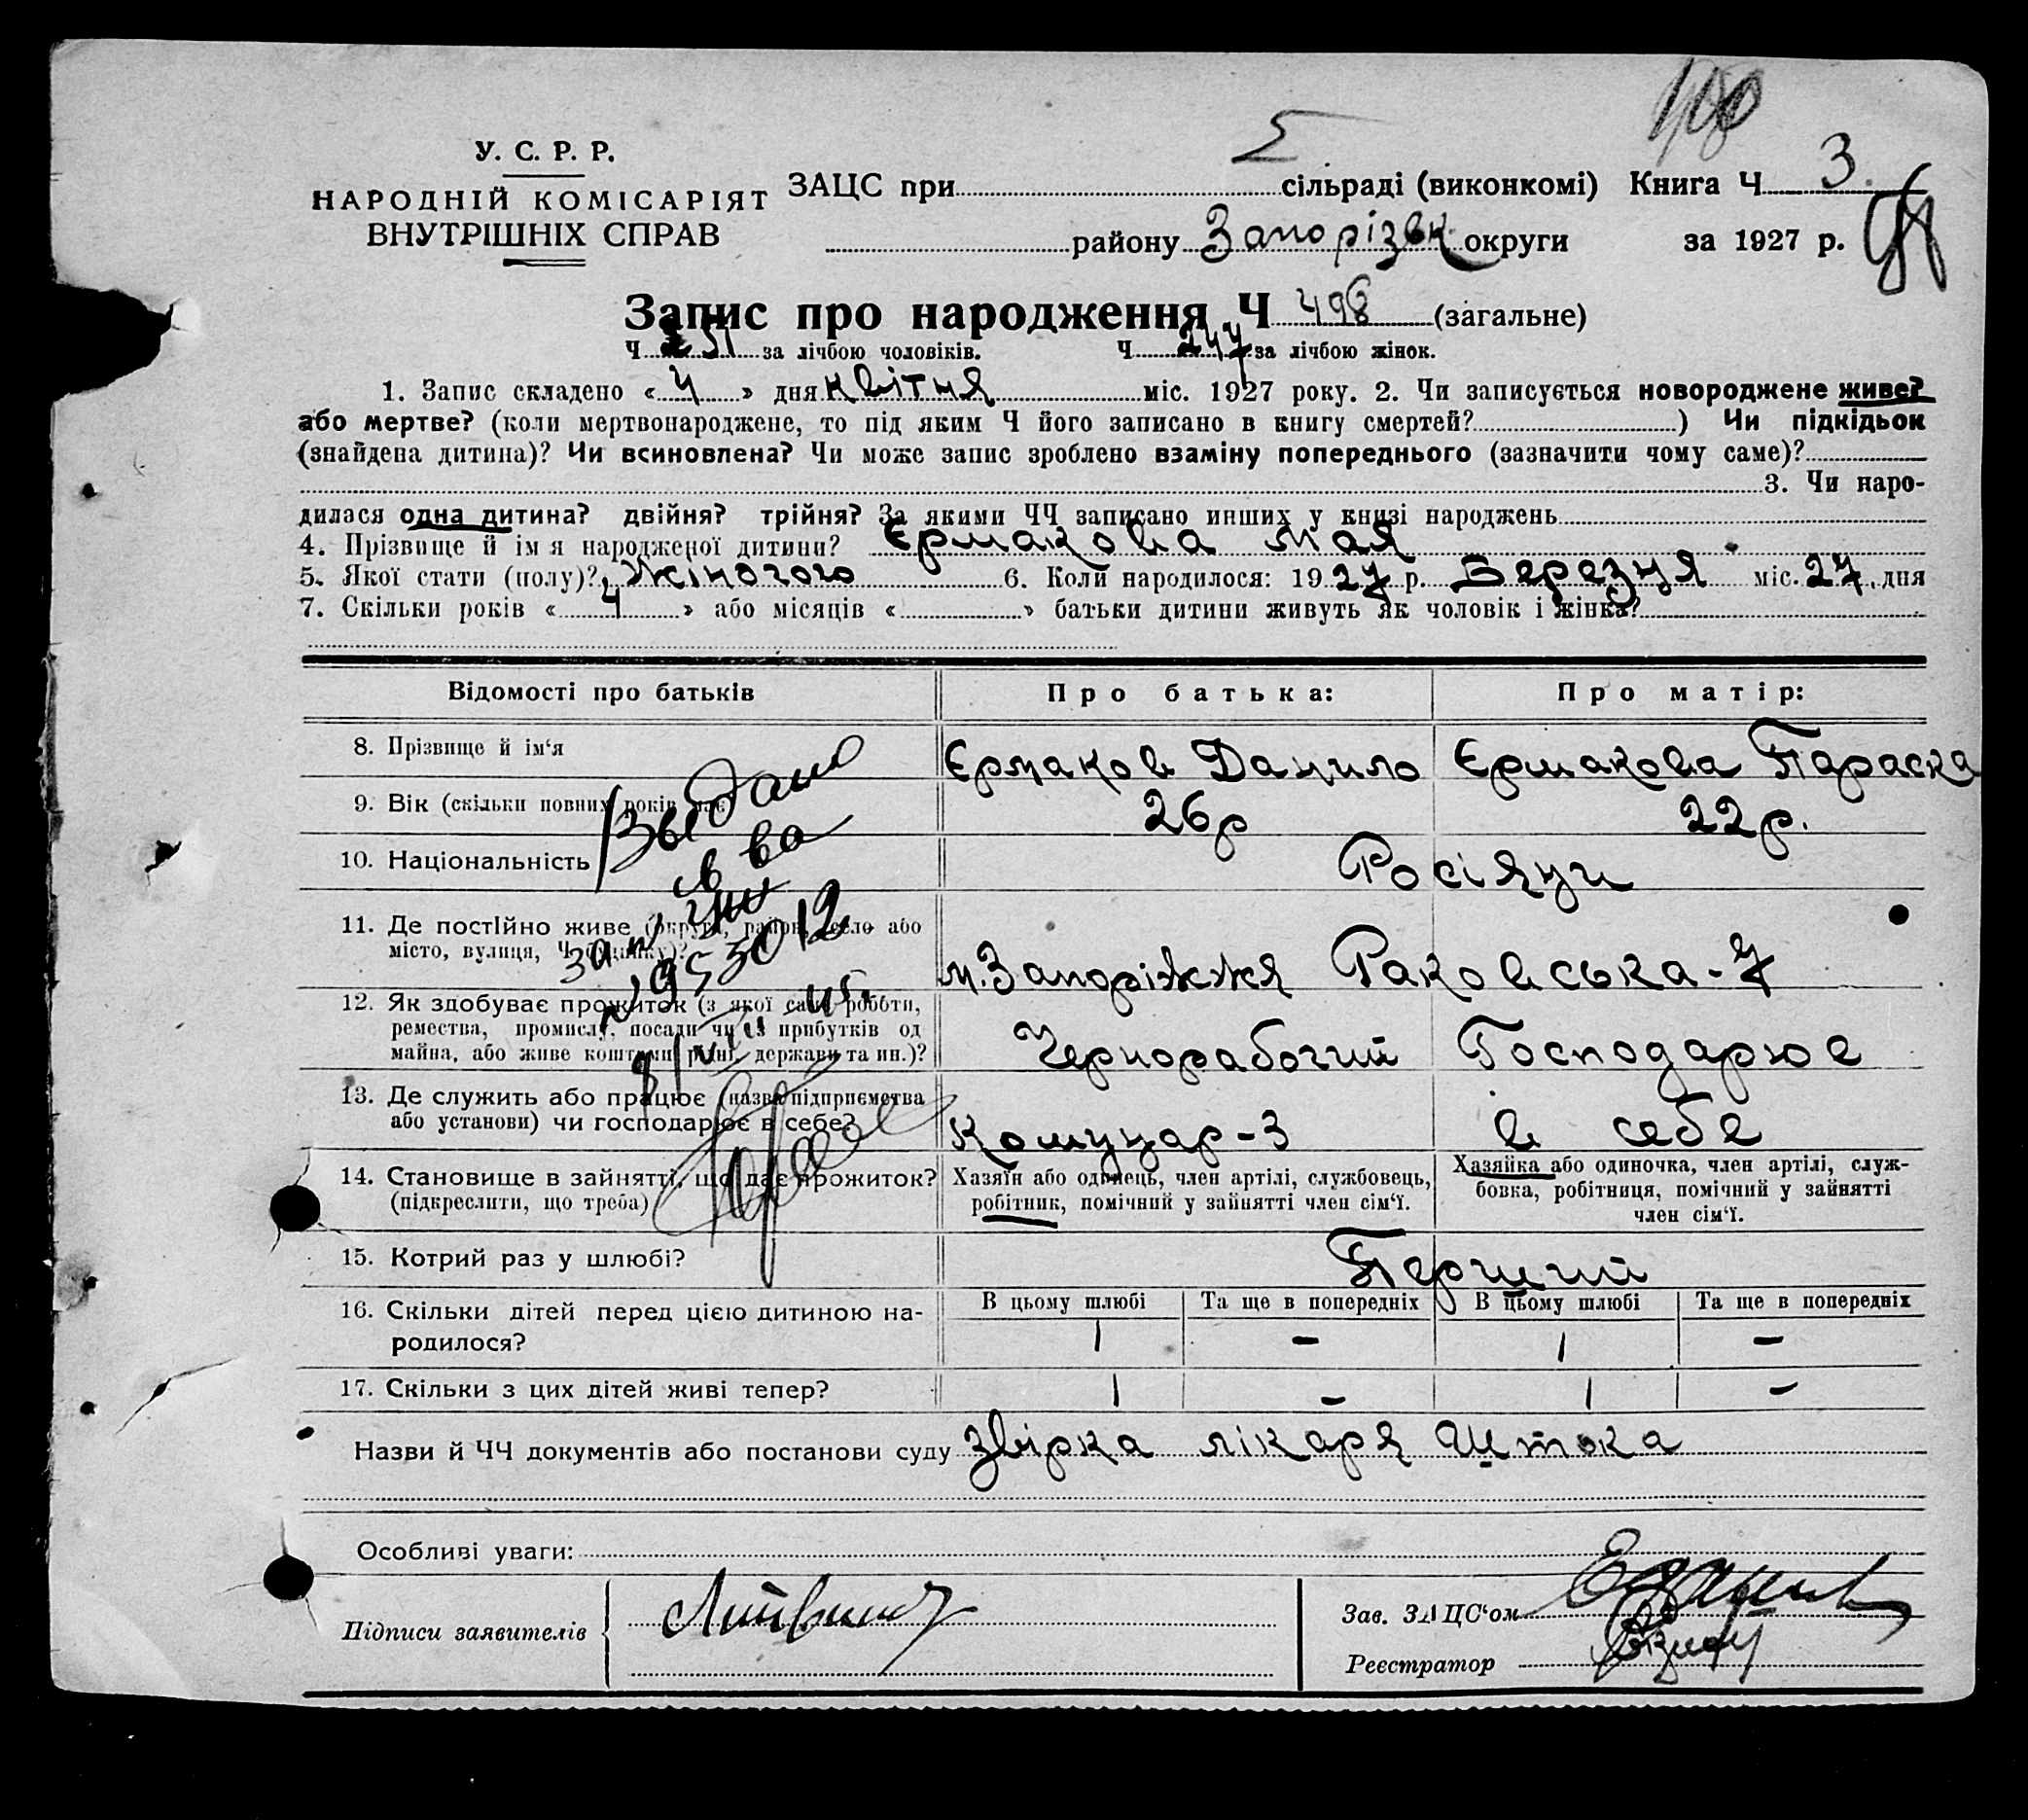 У. С. Р. Р.
НАРОДНІЙ КОМІСАРІЯТ
ВНУТРІШНІХ СПРАВ
ЗАЦС при сільраді (виконкомі) Книга Ч 3
району Запорізьк округи за 1927 р.
Запис про народження Ч 498 (загальне)
Ч 251 за лічбою чоловіків. Ч 247 за лічбою жінок.
1. Запис складено « 4 » дня квітня міс. 1927 року. 2. Чи записується новороджене живе?
або мертве? (коли мертвонароджене, то під яким Ч його записано в книгу смертей? ) Чи підкідьок
(знайдена дитина)? Чи всиновлена? Чи може запис зроблено взаміну попереднього (зазначити чому саме)?
3. Чи наро-
дилася одна дитина? двійня? трійня? За якими ЧЧ записано инших у книзі народжень
4. Прізвище й ім я народженої дитини? Єрмакова Мая
5. Якої стати (полу)? Жіночого 6. Коли народилося: 1927 р. Березня міс. 27 дня
7. Скільки років « 4 » або місяців « » батьки дитини живуть як чоловік і жінка?
Відомості про батьків Про батька: Про матір:
8. Прізвище й ім‘я Єрмаков Данило Єрмакова Параска
9. Вік (скільки повних років має) 26р 22р.
10. Національність Росіяни
11. Де постійно живе (округа, район, село або
місто, вулиця, Ч будинку)? м. Запоріжжя Раковська-7
12. Як здобуває прожиток (з якої саме роботи,
ремества, промислу, посади чи з прибутків од
майна, або живе коштами рідні, держави та ин.)? Чернорабочий Господарює
13. Де служить або працює (назва підприємства
або установи) чи господарює в себе? Комунар-3 в себе
14. Становище в зайнятті, що дає прожиток?
(підкреслити, що треба)
Хазяїн або одинець, член артілі, службовець,
робітник, помічний у зайнятті член сім‘ї.
Хазяйка або одиночка, член артілі, служ-
бовка, робітниця, помічний у зайнятті
член сім‘ї.
15. Котрий раз у шлюбі? Перший
16. Скільки дітей перед цією дитиною на-
родилося?
В цьому шлюбі Та ще в попередніх В цьому шлюбі Та ще в попередніх
1 - 1 -
17. Скільки з цих дітей живі тепер? 1 - 1 -
Назви й ЧЧ документів або постанови суду звірка лікаря Штока
Особливі уваги:
Підписи заявителів
Зав. ЗАЦС‘ом
Реєстратор